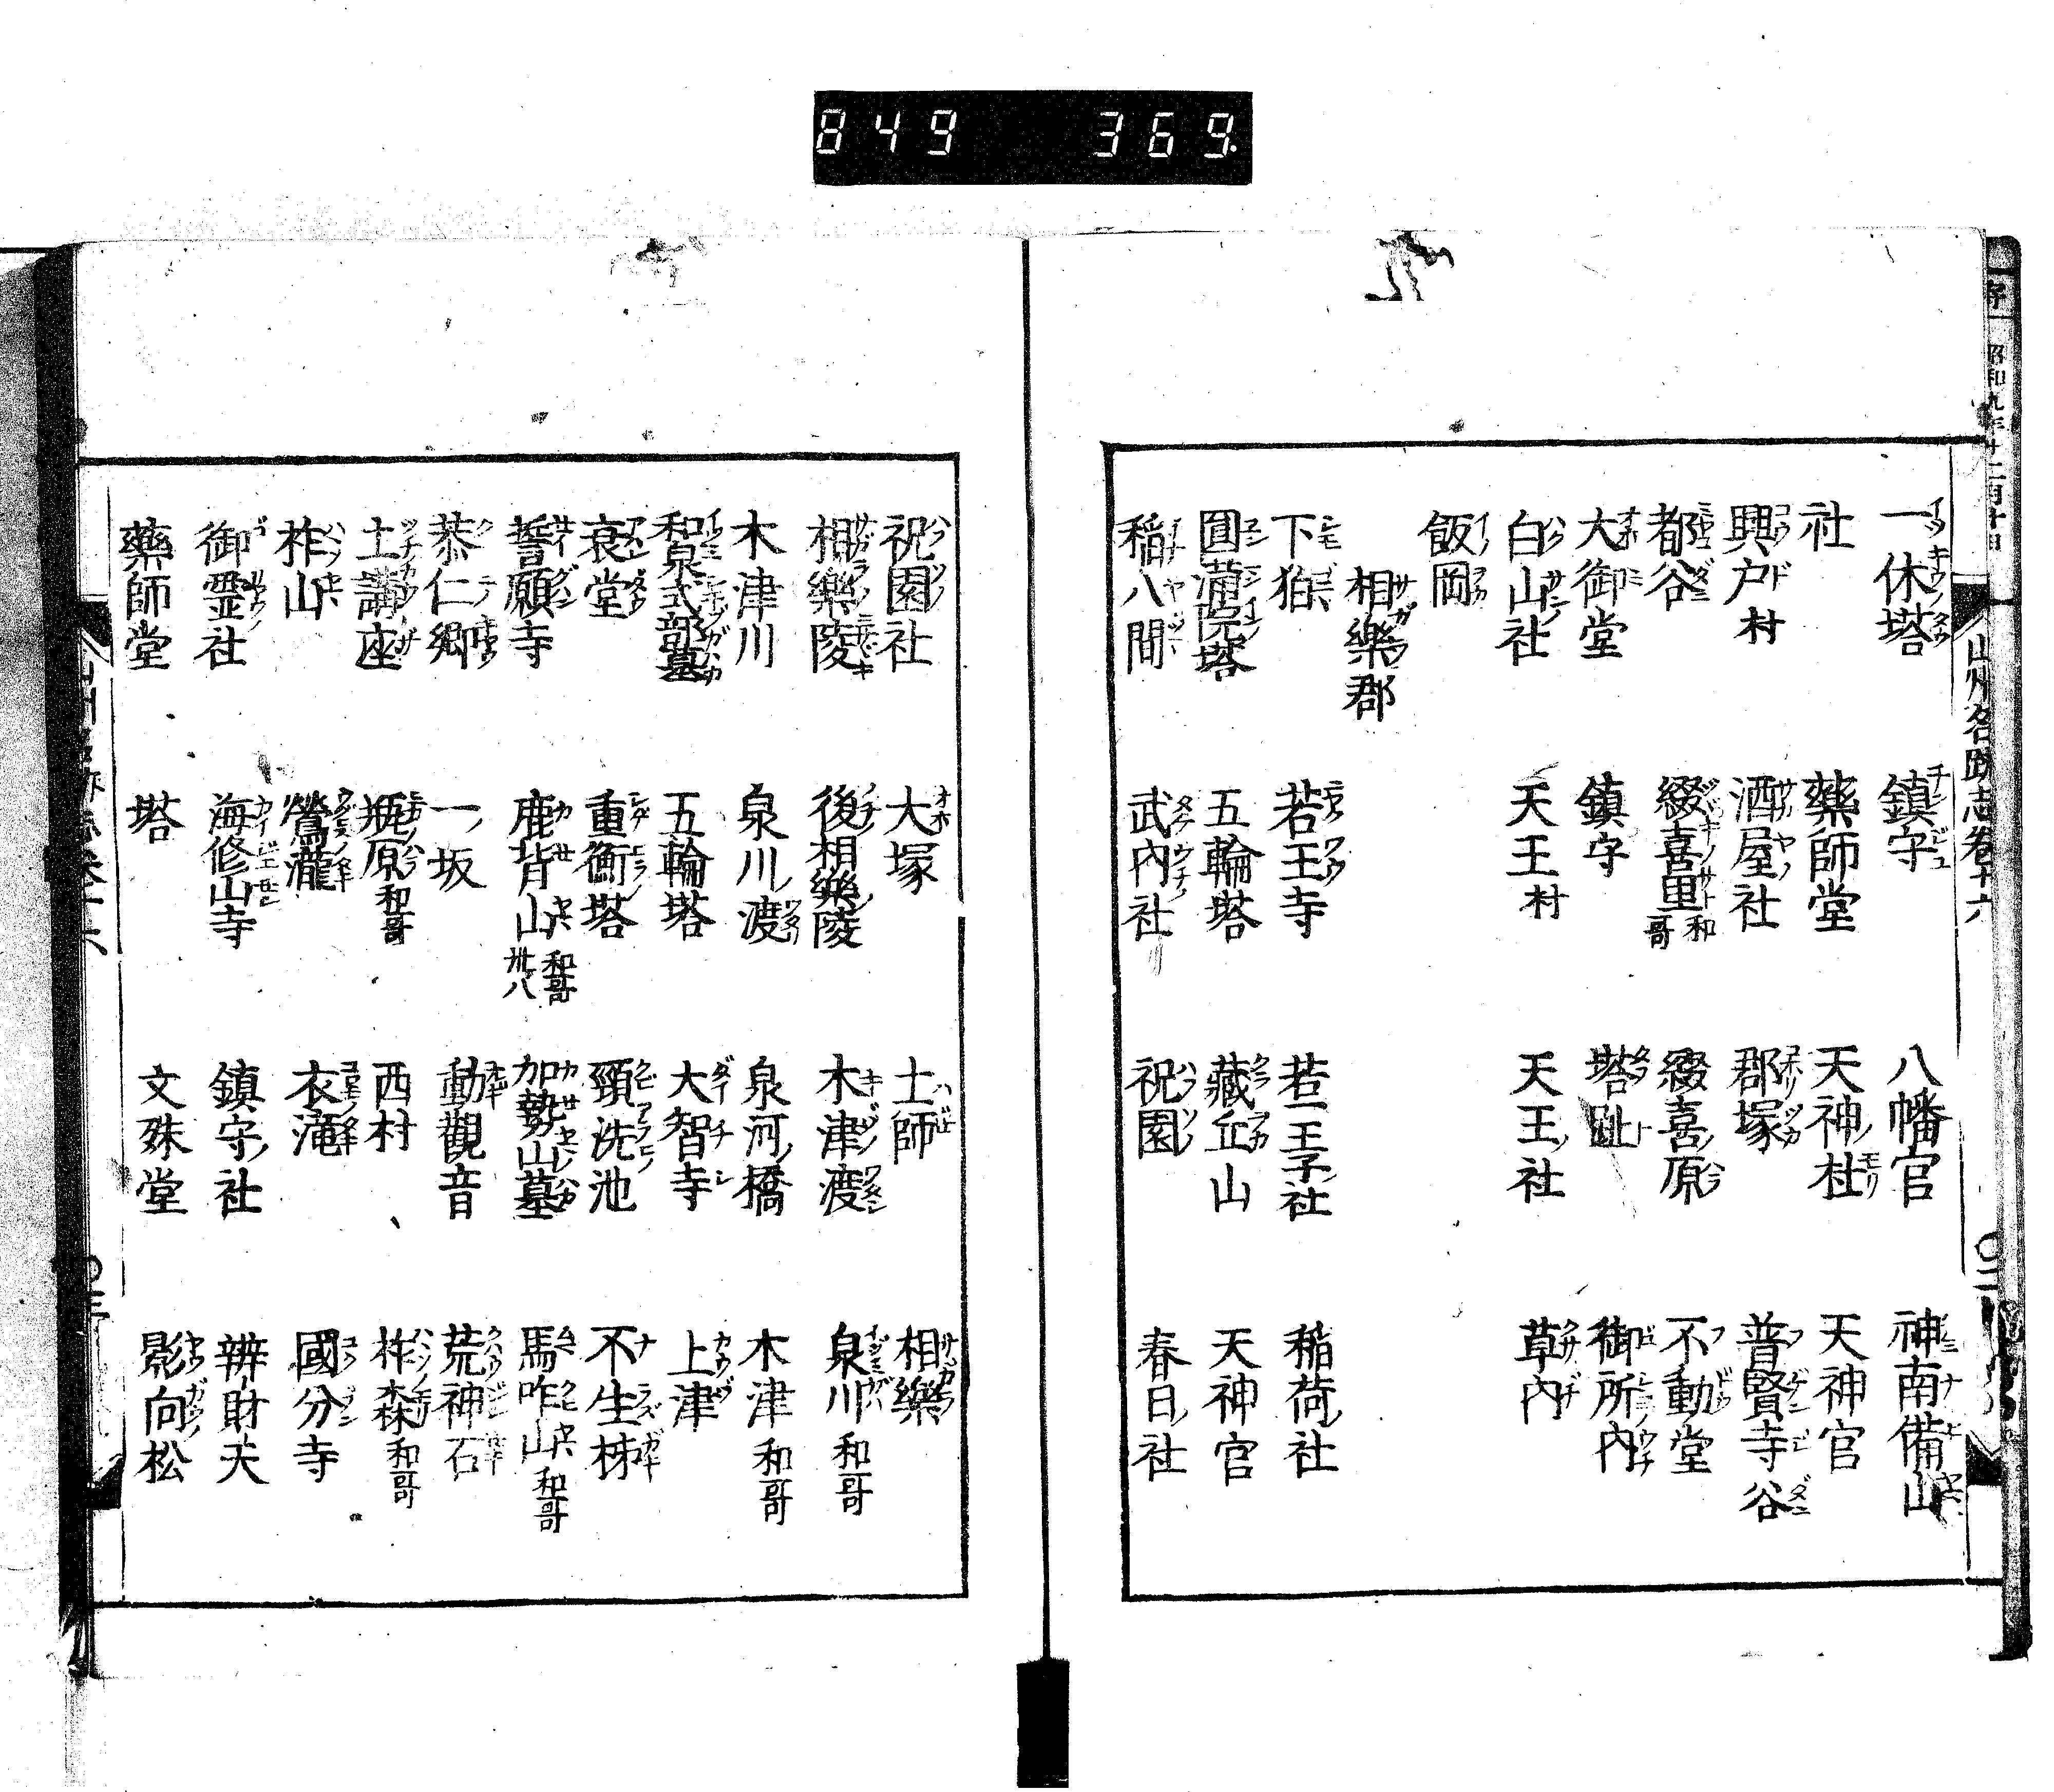 849 369.
昭和九年十二月十日
山州名跡志卷十六
一休塔 鎮守 八幡宮 神南備山
社 藥師堂 天神ノ杜 天神宮
興戸村 酒屋社 郡塚 普賢寺谷
都谷 綴喜里和哥 綴喜ノ原 不動堂
大御堂 鎮守 塔趾 御所内
白山社 天王村 天王ノ社 草内
飯岡
相樂郡
下狛 若王寺 若一王子ノ社 稲荷ノ社
圓蒲院塔 五輪塔 藏丘山 天神宮
稲八間 武内社 祝園 春日ノ社
祝園社 大塚 土師 相樂
相樂陵 後相樂ノ陵 木津渡 泉川和哥
木津川 泉川ノ渡 泉河ノ橋 木津和哥
和泉式部墓 五輪塔 大智寺 上津
哀堂 重衡塔 頸洗池 不生柿
誓願寺 鹿背山和哥卅八 加勢山墓 馬咋山和哥
恭仁郷 一ノ坂 動觀音 荒神石
土講座 瓶原和哥 西村 柞森和哥
柞山 鶯瀧 衣滝 國分寺
御霊社 海修山寺 鎮守ノ社 辨財天
藥師堂 塔 文殊堂 影向松